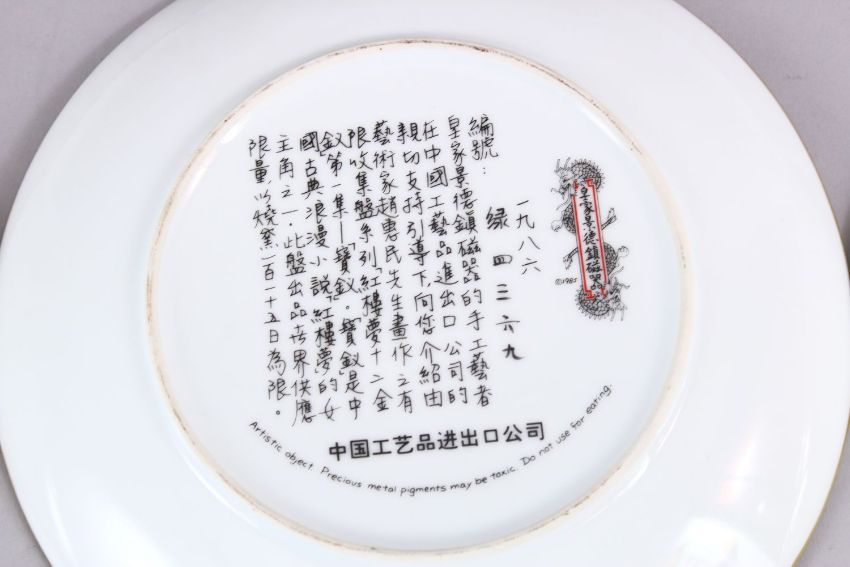 皇家景德鎮磁器
©1985
一九八六
绿四三六九
編號:
皇家景德鎮磁器的手工藝者
在中國工藝品進出口公司的
親切支持引導下,向您介紹由
藝術家趙惠民先生畫作之有
限收集盤系列「紅樓夢十二金
釵」第一集—「寶釵」。「寶釵」是中
國古典浪漫小說「紅樓夢」的女
主角之一.此盤出品世界供應
限量,以燒窯一百一十五日為限。
中国工艺品进出口公司
Artistic object. Precious metal pigments may be toxic. Do not use for eating.